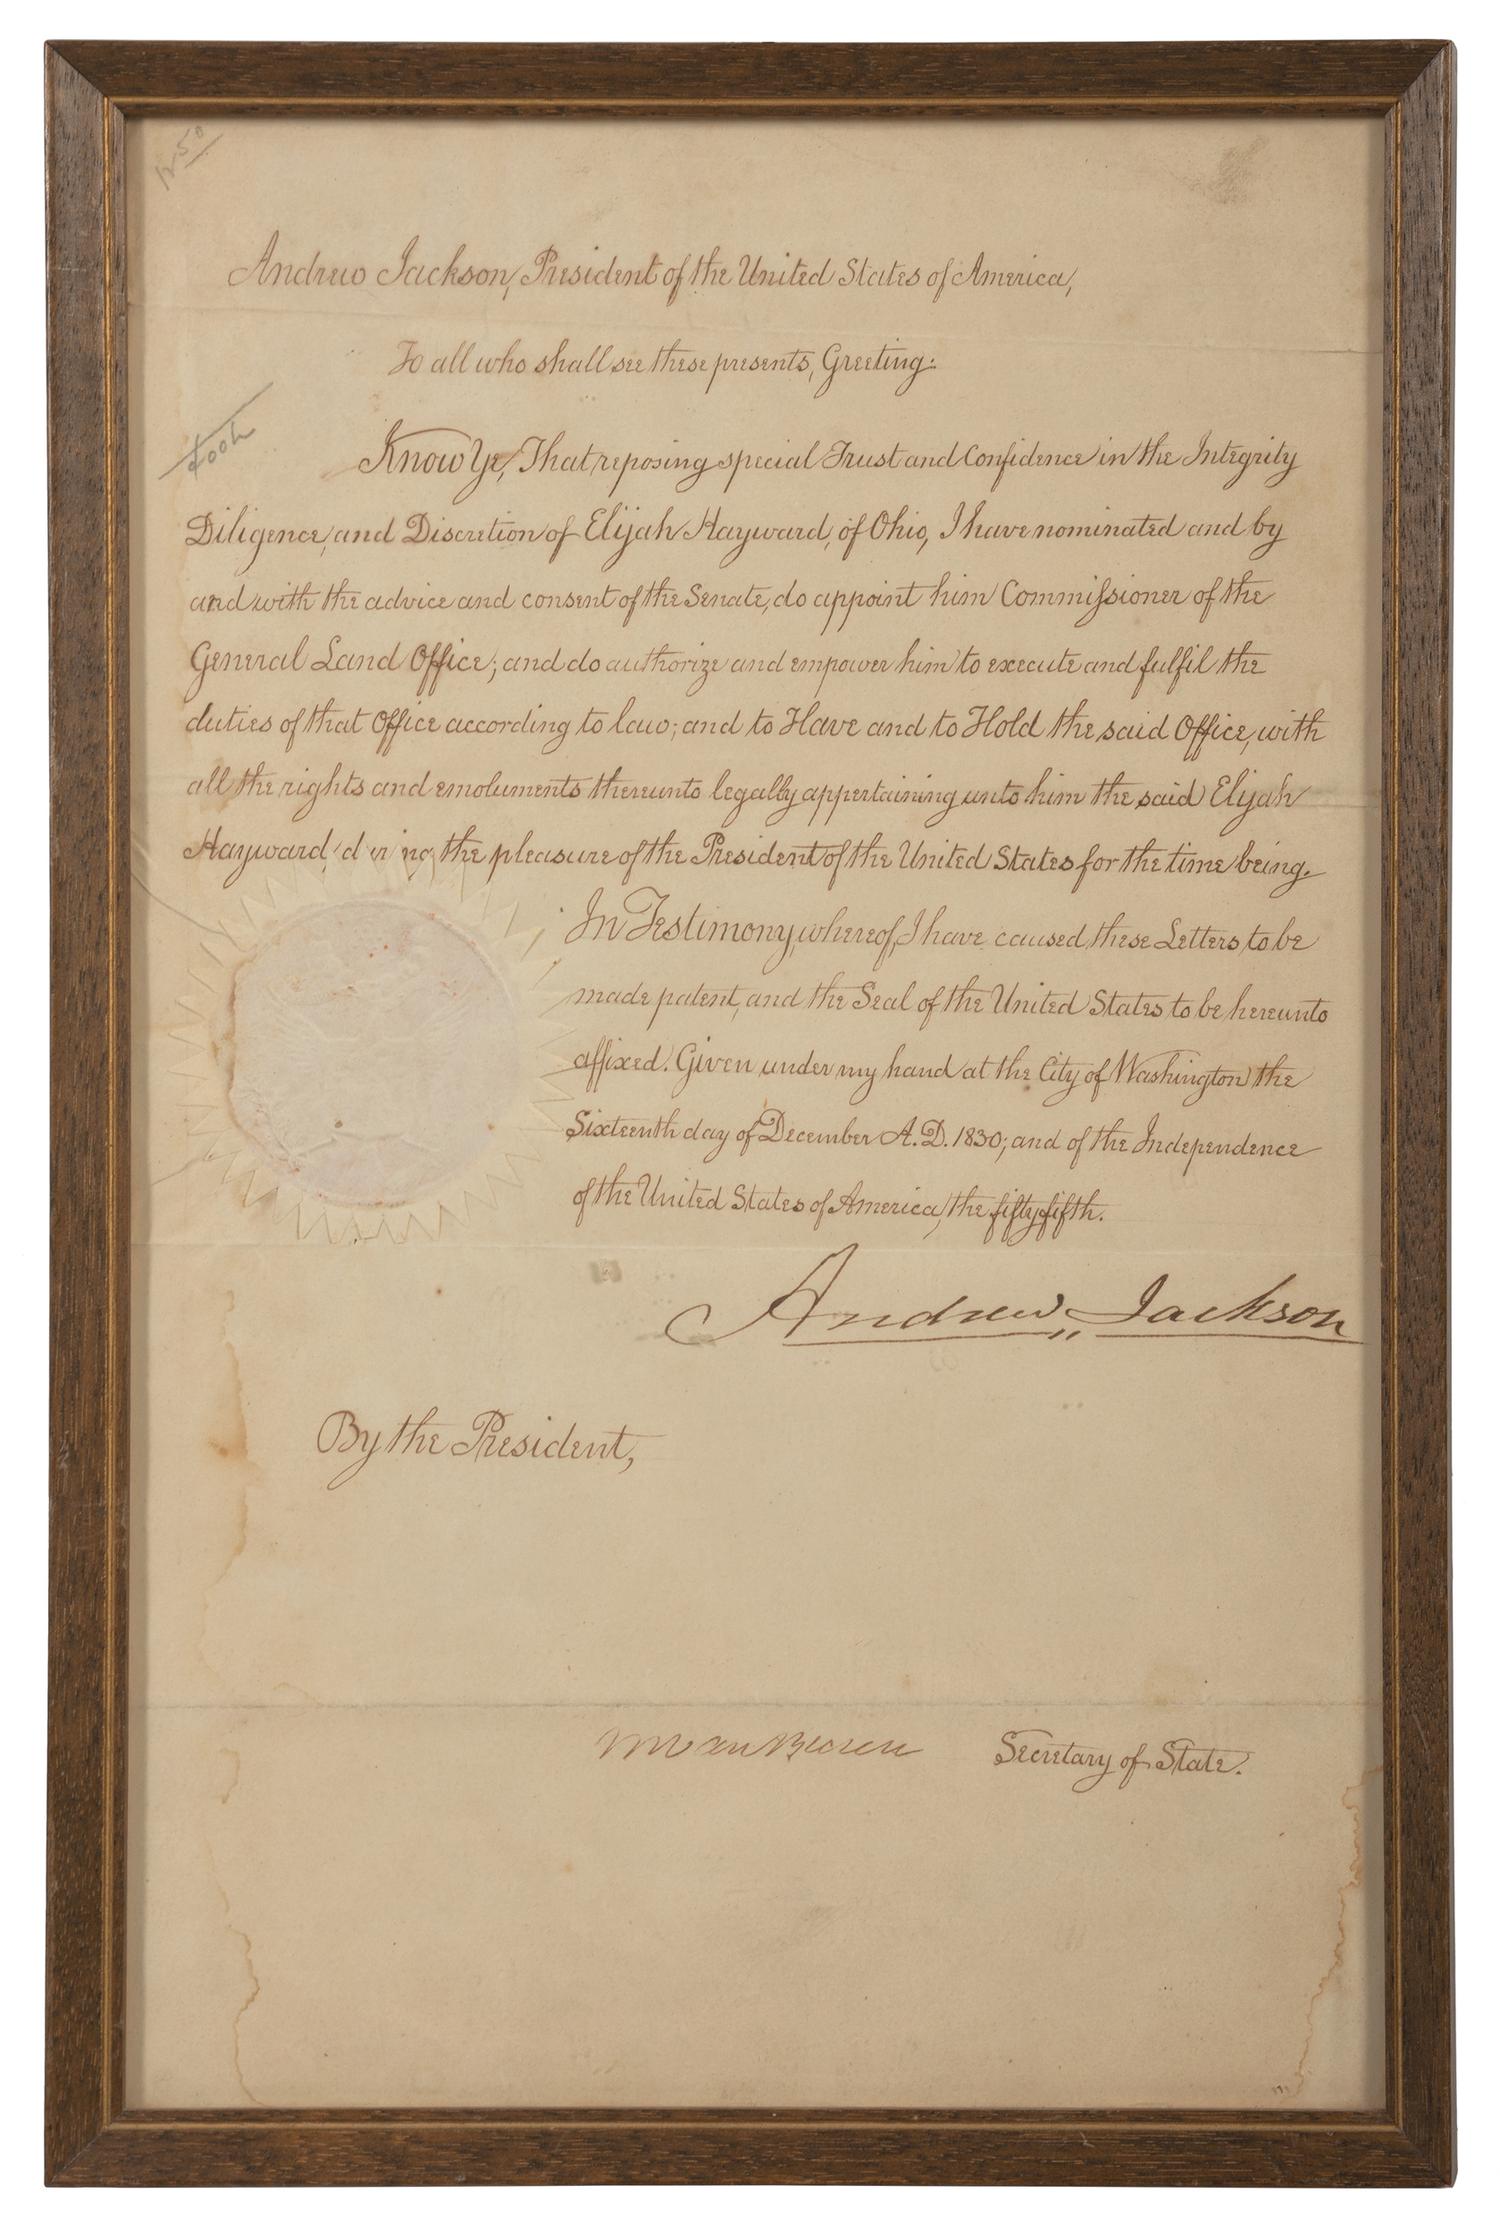 Andrew Jackson, President of the United States of America,
To all who shall see these presents, Greeting:
Know Ye, That reposing special Trust and Confidence in the Integrity
Diligence, and Discretion of Elijah Hayward, of Ohio, I have nominated and by
and with the advice and consent of the Senate, do appoint him Commissioner of the
General Land Office; and do authorize and empower him to execute and fulfil the
duties of that Office according to law; and to Have and to Hold the said Office, with
all the rights and emoluments thereunto legally appertaining unto him the said Elijah
Hayward, during the pleasure of the President of the United States for the time being.
In Testimony whereof, I have caused these Letters to be
made patent, and the Seal of the United States to be hereunto
affixed. Given under my hand at the City of Washington the
Sixteenth day of December A.D. 1830; and of the Independence
of the United States of America, the fifty fifth.
Andrew Jackson
By the President,
M Van Buren Secretary of State.